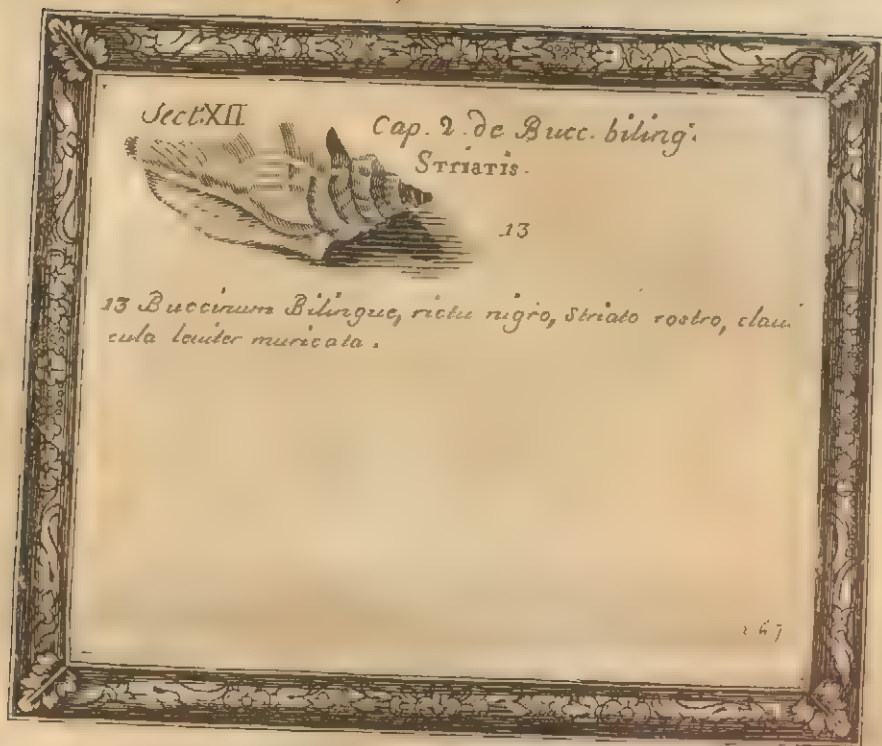 Sect: XII
Cap. 2. de Bucc. biling:
Striatis.
13
13 Buccinum Bilingue, rictu nigro, striato rostro, claui-
cula leuiter muricata.